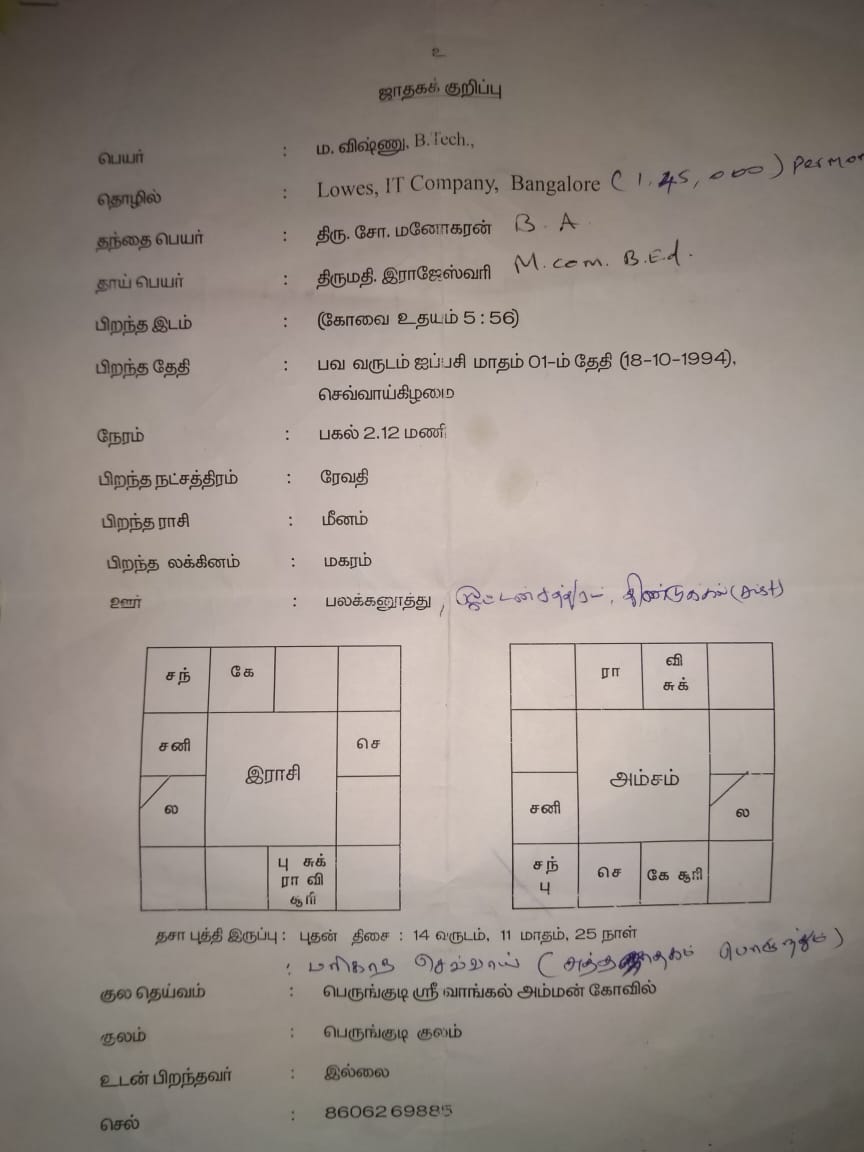 உ
ஜாதகக் குறிப்பு
பெயர் : ம. விஷ்ணு, B.Tech.,
தொழில் : Lowes, IT Company, Bangalore (1,45,000) Per mon
தந்தை பெயர் : திரு. சோ. மனோகரன் B.A
தாய் பெயர் : திருமதி. இராஜேஸ்வரி M.com. B.Ed.
பிறந்த இடம் : (கோவை உதயம் 5 : 56)
பிறந்த தேதி : பவ வருடம் ஐப்பசி மாதம் 01-ம் தேதி (18-10-1994),
செவ்வாய்கிழமை
நேரம் : பகல் 2.12 மணி
பிறந்த நட்சத்திரம் : ரேவதி
பிறந்த ராசி : மீனம்
பிறந்த லக்கினம் : மகரம்
ஊர் : பலக்கனூத்து, ஒட்டன்சத்திரம், திண்டுக்கல் (Dist)
சந் கே
சனி இராசி செ
ல
பு சுக்
ரா வி
சூரி
ரா வி
சுக்
அம்சம்
சனி ல
சந் செ கே சூரி
பு
தசா புத்தி இருப்பு : புதன் திசை : 14 வருடம், 11 மாதம், 25 நாள்
: பரிகார செவ்வாய் ( பொருந்தும்)
குல தெய்வம் : பெருங்குடி ஸ்ரீ வாங்கல் அம்மன் கோவில்
குலம் : பெருங்குடி குலம்
உடன் பிறந்தவர் : இல்லை
செல் : 8606269885